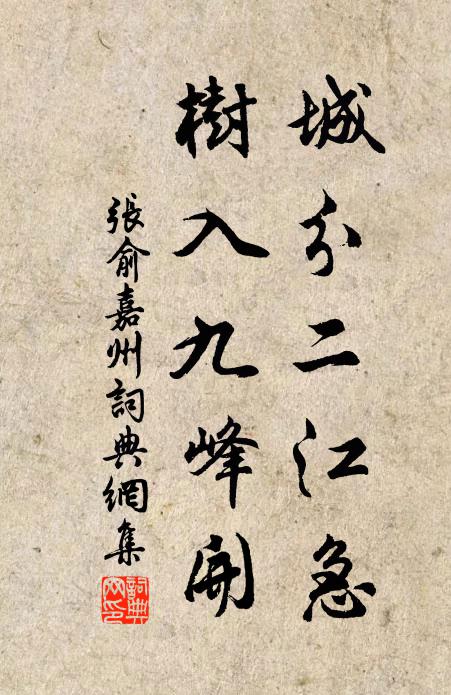 城分二江急
樹入九峰開
張俞嘉州詞典網集
詞典
网印